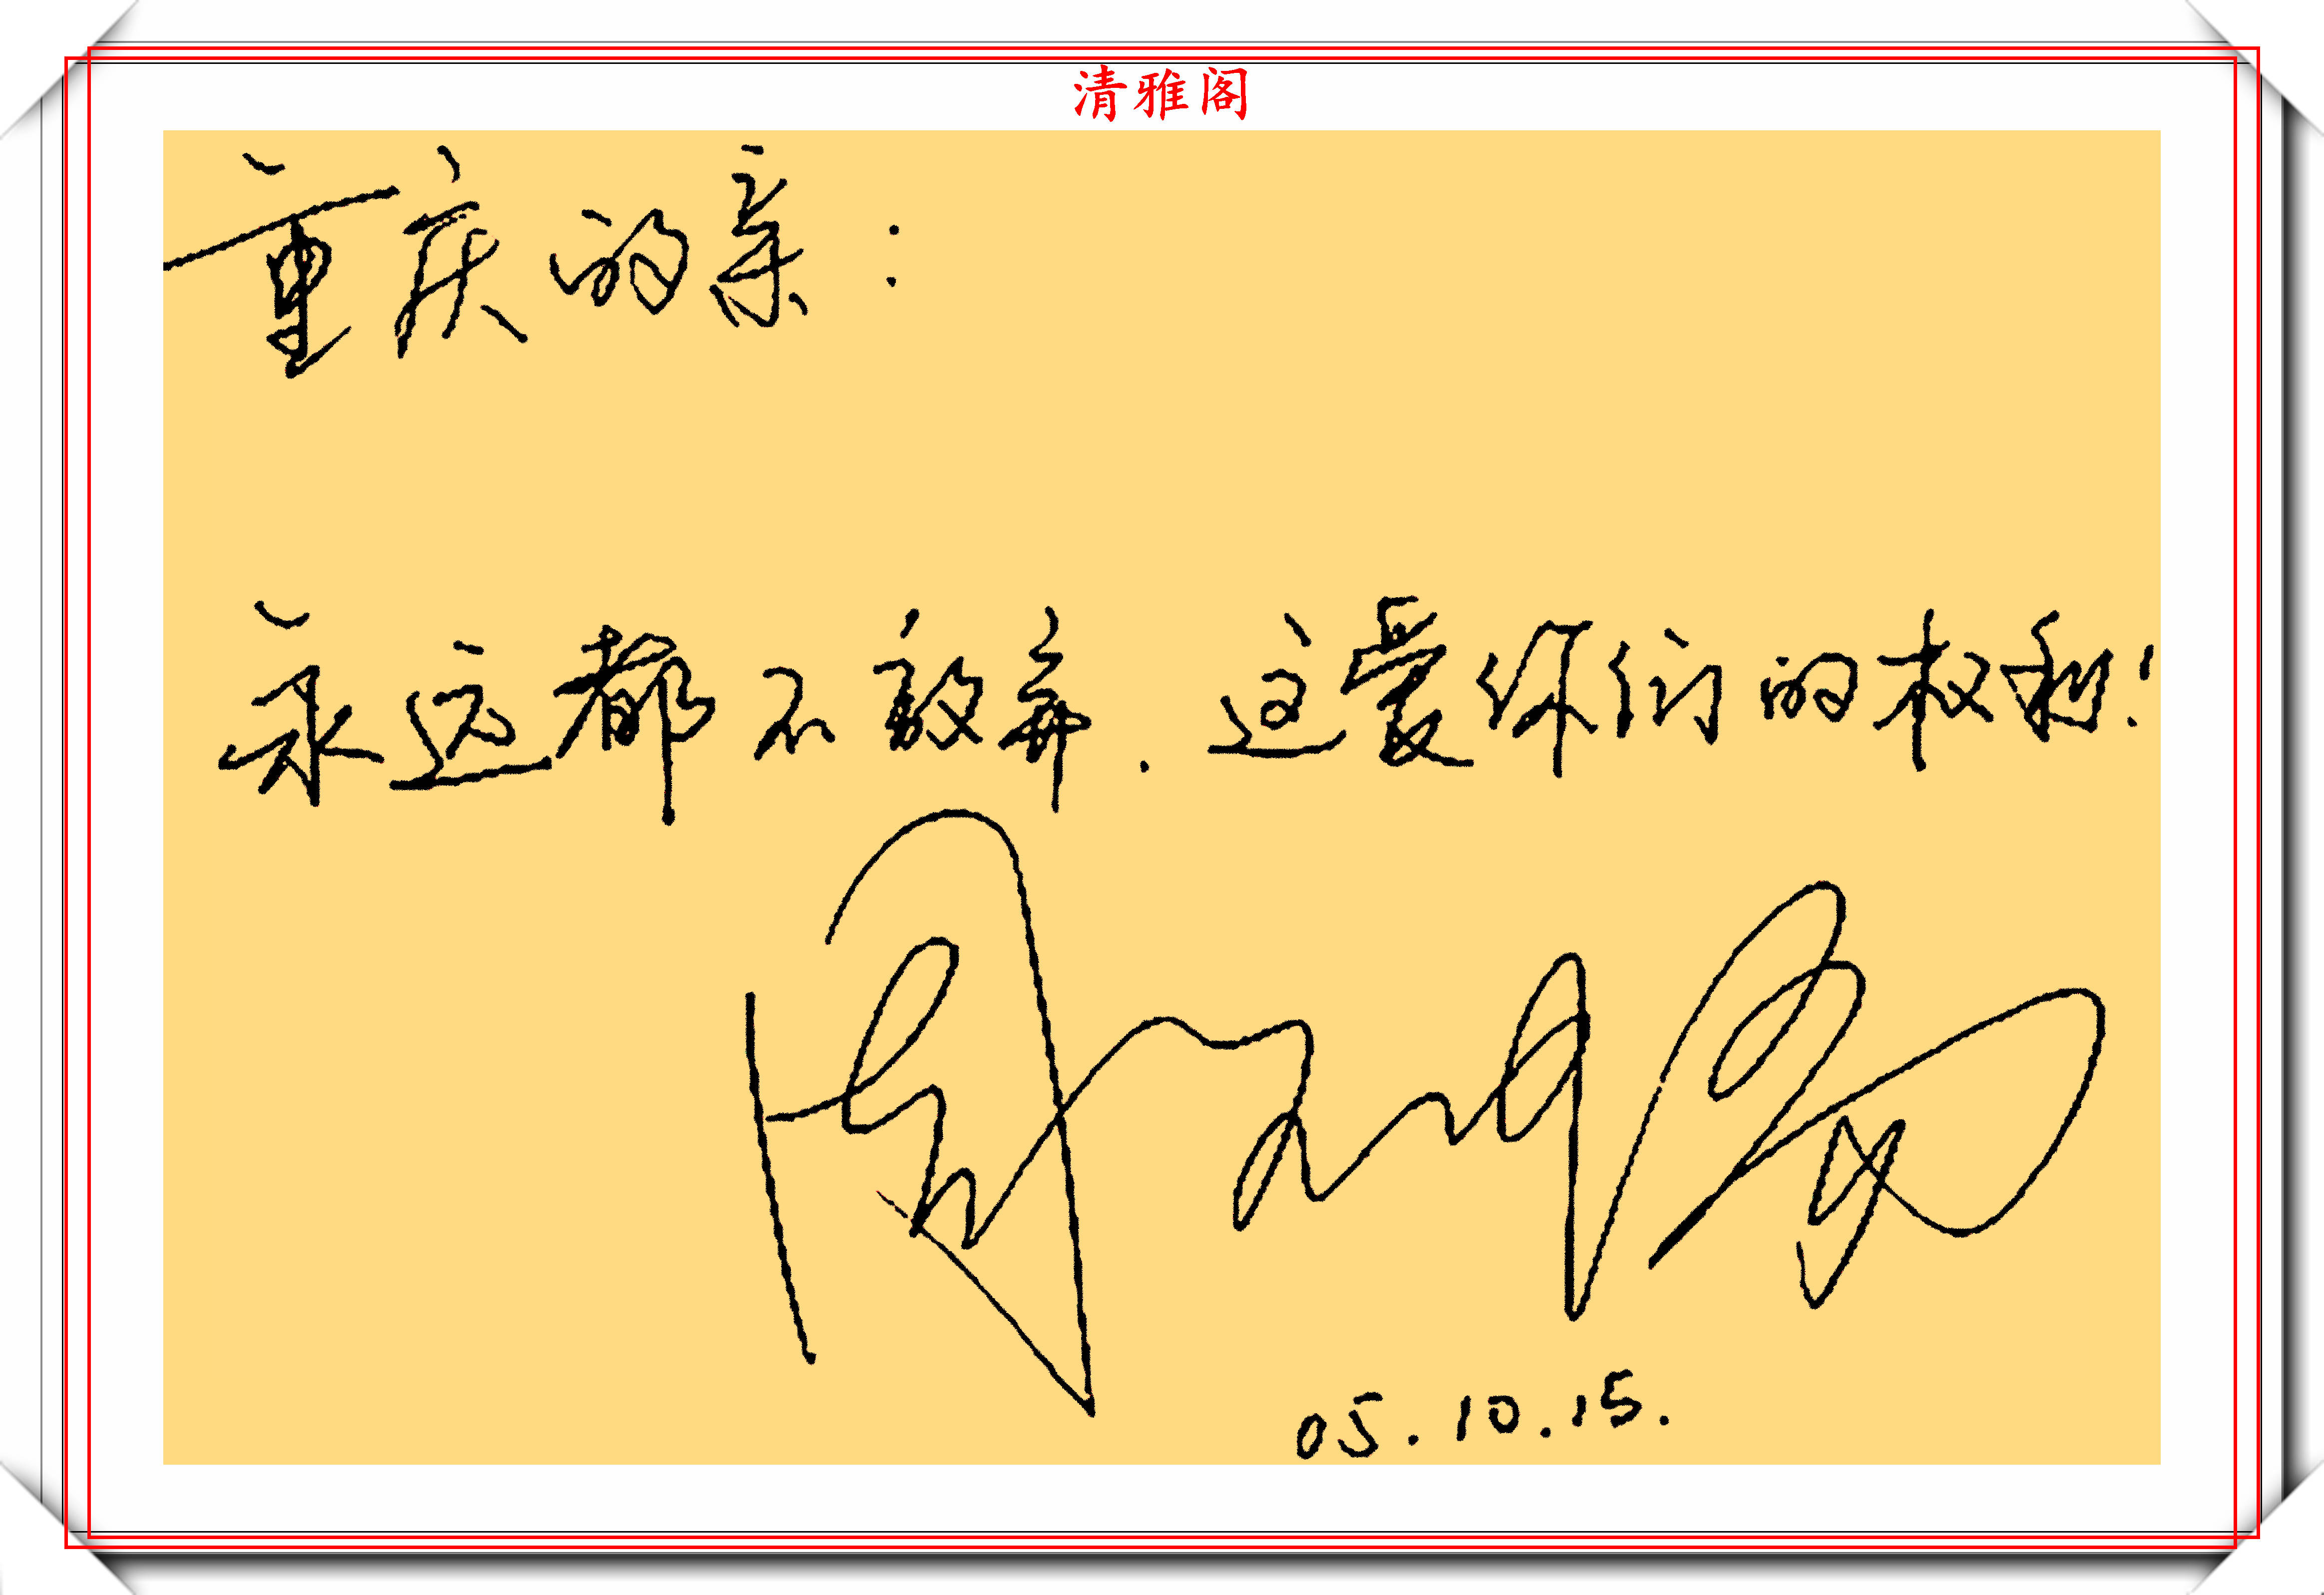 清雅阁
重庆的亲:
永远都不放弃.这爱你们的权利!
05.10.15.